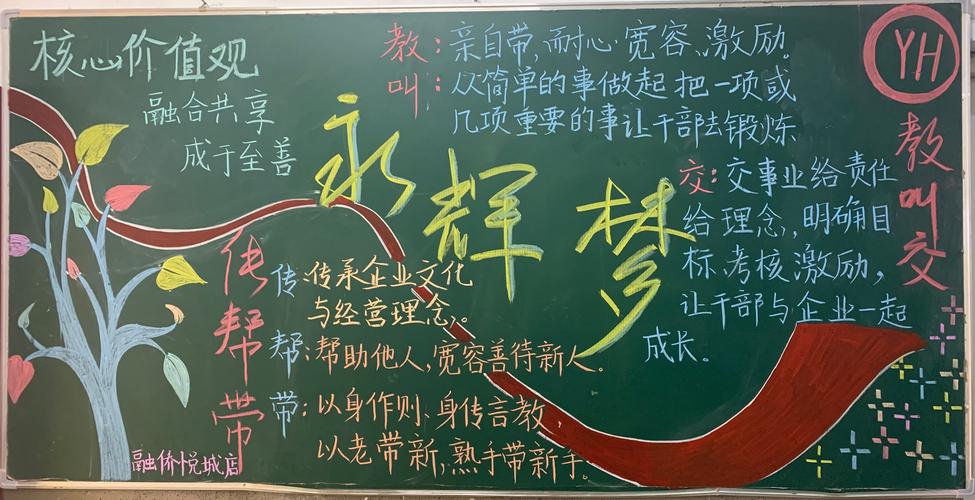 核心价值观
融合共享
成于至善
永辉梦
YH
教叫交
教：亲自带，耐心、宽容、激励。
叫：从简单的事做起把一项或
几项重要的事让干部去锻炼
交：交事业给责任
给理念，明确目
标、考核激励，
让干部与企业一起
成长。
传帮带
传：传承企业文化
与经营理念。
帮：帮助他人，宽容善待新人。
带：以身作则、身传言教，
以老带新，熟手带新手。
融侨悦城店